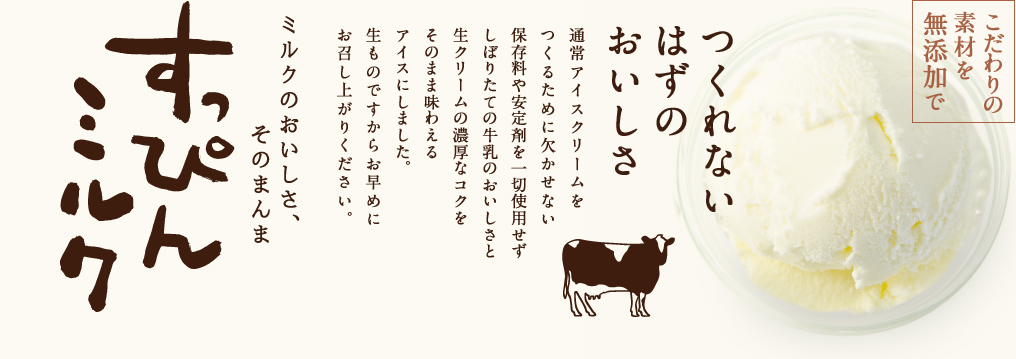 こだわりの
素材を
無添加で
つくれない
はずの
おいしさ
通常アイスクリームを
つくるために欠かせない
保存料や安定剤を一切使用せず
しぼりたての牛乳のおいしさと
生クリームの濃厚なコクを
そのまま味わえる
アイスにしました。
生ものですからお早めに
お召し上がりください。
ミルクのおいしさ、
そのまんま
すっぴん
ミルク